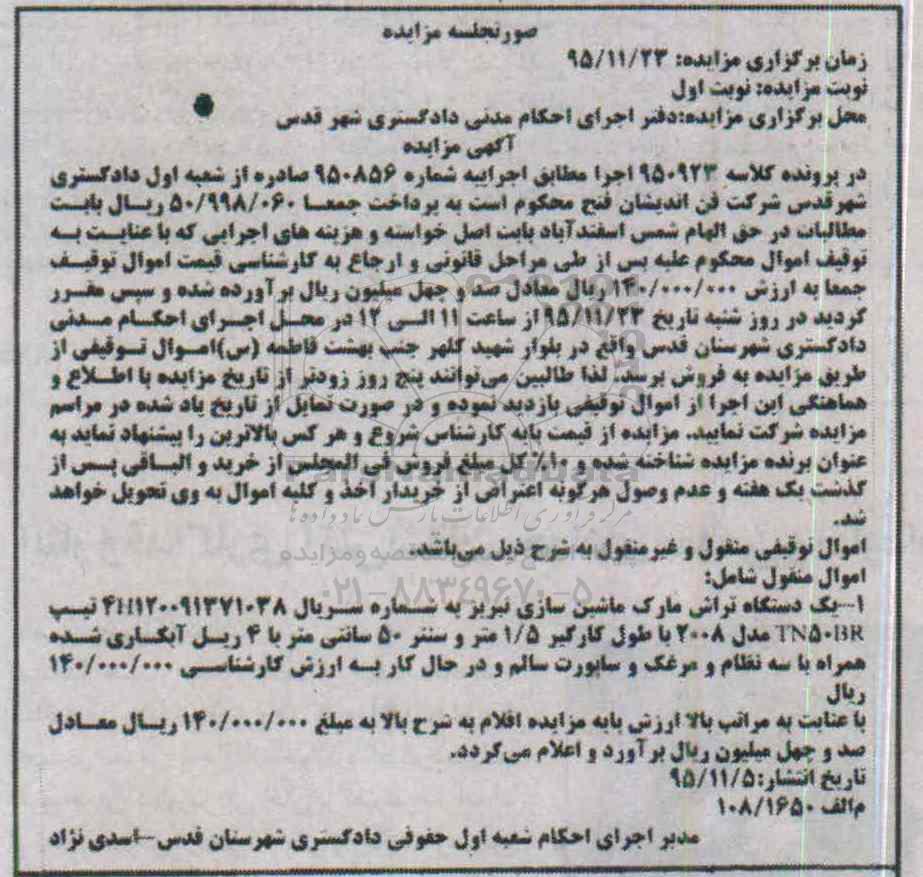 صورتجلسه مزایده
زمان برگزاری مزایده: ۹۵/۱۱/۲۳
نوبت مزایده: نوبت اول
محل برگزاری مزایده:دفتر اجرای احکام مدنی دادگستری شهر قدس
آگهی مزایده
در پرونده کلاسه ۹۵۰۹۲۳ اجرا مطابق اجراییه شماره ۹۵۰۸۵۶ صادره از شعبه اول دادگستری
شهرقدس شرکت فن اندیشان فتح محکوم است به پرداخت جمعا ۵۰/۹۹۸/۰۶۰ ریال بابت
مطالبات در حق الهام شمس اسفندآباد بابت اصل خواسته و هزینه های اجرایی که با عنایت به
توقیف اموال محکوم علیه پس از طی مراحل قانونی و ارجاع به کارشناسی قیمت اموال توقیف
جمعا به ارزش ۱۴۰/۰۰۰/۰۰۰ ریال معادل صد و چهل میلیون ریال برآورده شده و سپس مقرر
گردید در روز شنبه تاریخ ۹۵/۱۱/۲۳ از ساعت ۱۱ الی ۱۲ در محل اجرای احکام مدنی
دادگستری شهرستان قدس واقع در بلوار شهید کلهر جنب بهشت فاطمه (س)اموال توقیفی از
طریق مزایده به فروش برسد. لذا طالبین می‌توانند پنج روز زودتر از تاریخ مزایده با اطلاع و
هماهنگی این اجرا از اموال توقیفی بازدید نموده و در صورت تمایل از تاریخ یاد شده در مراسم
مزایده شرکت نمایید. مزایده از قیمت پایه کارشناس شروع و هر کس بالاترین را پیشنهاد نماید به
عنوان برنده مزایده شناخته شده و ۱۰٪ کل مبلغ فروش فی المجلس از خرید و الباقی پس از
گذشت یک هفته و عدم وصول هرگونه اعتراض از خریدار اخذ و کلیه اموال به وی تحویل خواهد
شد.
اموال توقیفی منقول و غیرمنقول به شرح ذیل می‌باشد.
اموال منقول شامل:
۰۲۱-۸۸۳۴۹۶۷۰-۵
۱-یک دستگاه تراش مارک ماشین سازی تبریز به شماره سریال ۴H۱۲۰۰۹۱۳۷۱۰۳۸ تیپ
TN۵۰BR مدل ۲۰۰۸ با طول کارگیر ۱/۵ متر و سنتر ۵۰ سانتی متر با ۴ ریل آبکاری شده
همراه با سه نظام و مرغک و ساپورت سالم و در حال کار به ارزش کارشناسی ۱۴۰/۰۰۰/۰۰۰
ریال
با عنایت به مراتب بالا ارزش پایه مزایده اقلام به شرح بالا به مبلغ ۱۴۰/۰۰۰/۰۰۰ ریال معادل
صد و چهل میلیون ریال برآورد و اعلام می‌گردد.
تاریخ انتشار:۹۵/۱۱/۵
م‌الف ۱۰۸/۱۶۵۰
مدیر اجرای احکام شعبه اول حقوقی دادگستری شهرستان قدس-اسدی نژاد